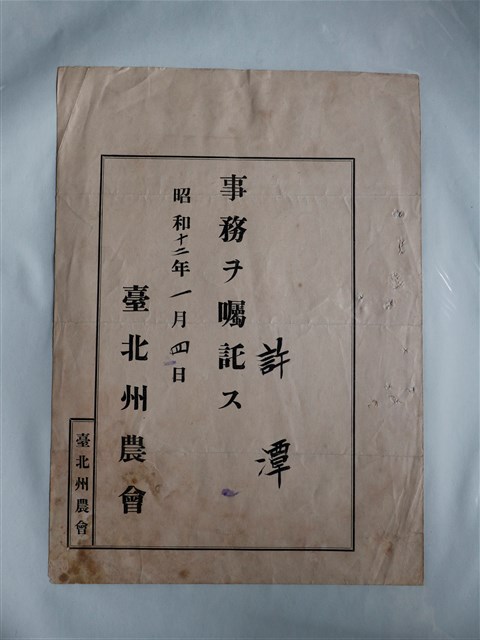 許潭
事務ヲ囑託ス
昭和十二年一月四日
臺北州農會
臺北州農會